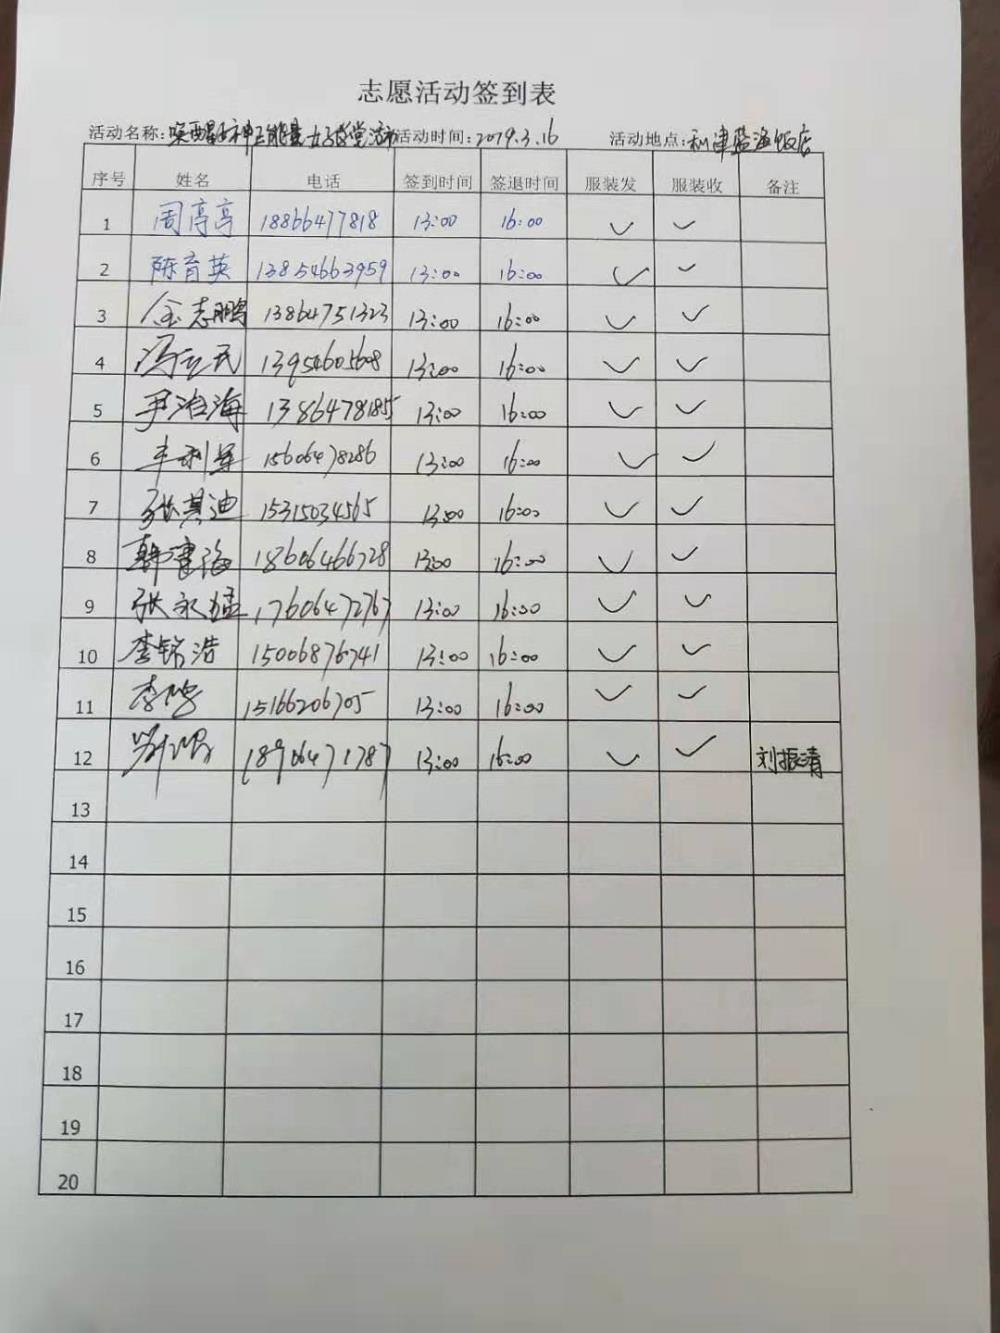 志愿活动签到表
活动名称:唤醒女神正能量女子感党活动 活动时间:2019.3.16 活动地点:利津蓝海饭店
序号 姓名 电话 签到时间 签退时间 服装发 服装收 备注
1 周亭亭 18866477818 13:00 16:00 ✓ ✓
2 陈育英 13854663959 13:00 16:00 ✓ ✓
3 金志鹏 13864751323 13:00 16:00 ✓ ✓
4 冯立民 13954605608 13:00 16:00 ✓ ✓
5 尹海 13864781855 13:00 16:00 ✓ ✓
6 利军 15606478286 13:00 16:00 ✓ ✓
7 张其迪 15315034565 13:00 16:00 ✓ ✓
8 韩海 18606466728 13:00 16:00 ✓ ✓
9 张永猛 17606472767 13:00 16:00 ✓ ✓
10 李锦浩 15006876741 13:00 16:00 ✓ ✓
11 李 15166206705 13:00 16:00 ✓ ✓
12 18906471787 13:00 16:00 ✓ ✓ 刘振清
13
14
15
16
17
18
19
20